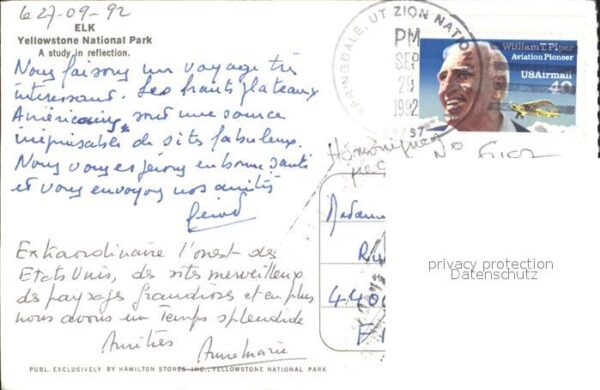 le 27-09-92
ELK
Yellowstone National Park
A study in reflection.
Nous faisons un voyage très
intéressant. Les hauts plateaux
Américains sont une source
inépuisable de sites fabuleux.
Nous vous espérons en bonne santé
et vous envoyons nos amitiés
Extraordinaire l'ouest des
Etats Unis, des sites merveilleux
des paysages grandioses et en plus
nous avons un temps splendide
Amitiés
Anne Marie
PUBL. EXCLUSIVELY BY HAMILTON STORES INC., YELLOWSTONE NATIONAL PARK
SPRINGDALE, UT ZION NATION
PM
SEP
29
1992
William T. Piper
Aviation Pioneer
USAirmail
40
Madame
440
privacy protection
Datenschutz